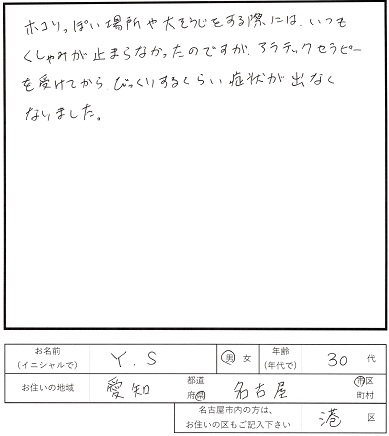 ホコリっぽい場所や大そうじをする際には、いつも
くしゃみが止まらなかったのですが、アラテックセラピー
を受けてから びっくりするくらい 症状が出なく
なりました。
お名前
(イニシャルで) Y.S 男 女 年齢
(年代で) 30 代
お住いの地域 愛知 都道
府県 名古屋 市区
町村
名古屋市内の方は、
お住いの区もご記入下さい 港 区